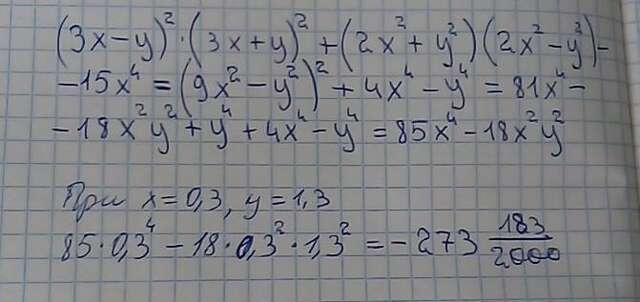 (3x-y)²·(3x+y)²+(2x²+y²)(2x²-y²)-
-15x⁴=(9x²-y²)²+4x⁴-y⁴=81x⁴-
-18x²y²+y⁴+4x⁴-y⁴=85x⁴-18x²y²
При x=0,3, y=1,3
85·0,3⁴-18·0,3²·1,3²=-273 183/2000